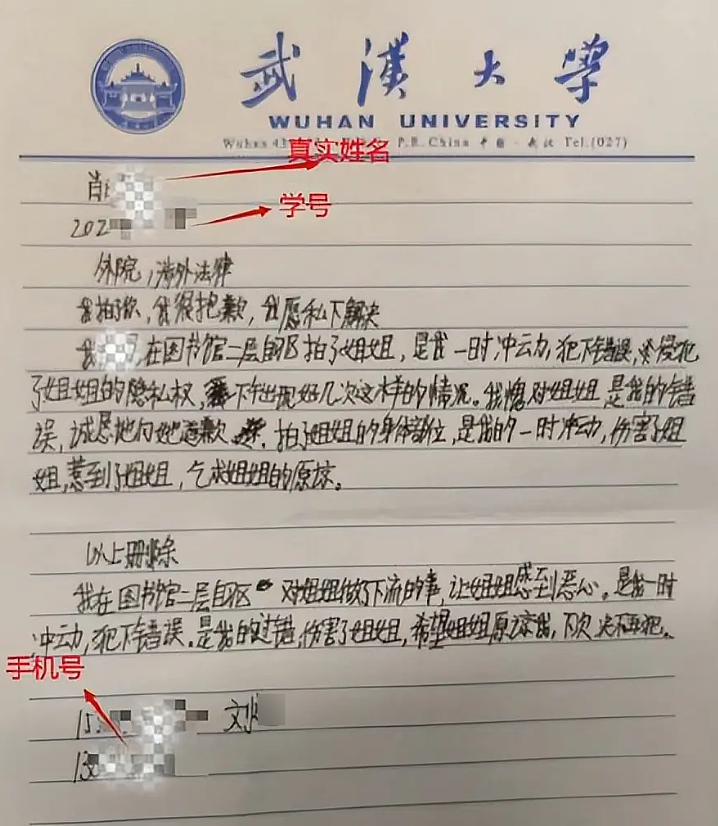 武漢大學
WUHAN UNIVERSITY
P.R.China 中国·武汉 Tel.(027)
真实姓名
肖
202
学号
外院，涉外法律
我拍了你，我很抱歉，我愿私下解决
我 在图书馆二层自习区拍了姐姐，是我一时冲动，犯下错误，侵犯
了姐姐的隐私权，下午出现好几次这样的情况。我愧对姐姐是我的错
误，诚恳地向她道歉，拍了姐姐的身体部位，是我的一时冲动，伤害了姐
姐，惹到了姐姐，乞求姐姐的原谅。
以上删除
我在图书馆二层自习区 对姐姐做了下流的事，让姐姐感到恶心。是我一时
冲动，犯下错误。是我的过错，伤害了姐姐，希望姐姐原谅我，下次决不再犯。
手机号
15
刘
13